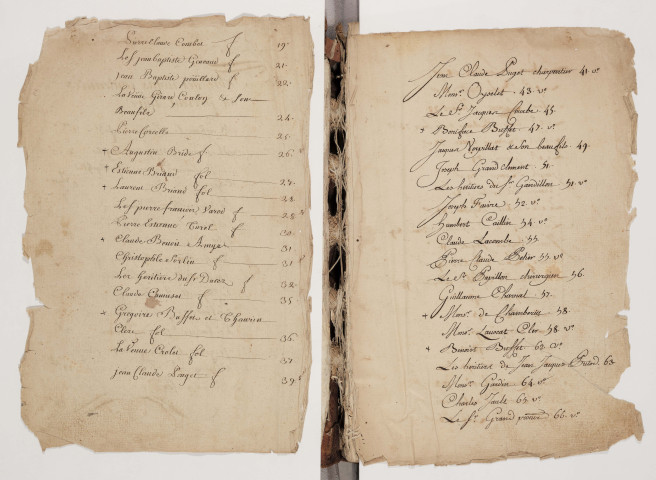 Pierre Louis Combet f 19.
Le sr jean baptiste Giraud f 21.
jean Baptiste pouillard f 22.
La Veuve Girau Coulon & Son
Beaufils 24.
Pierre Corcelle 25.
+ Augustin Bride f 26.
+ Estienne Briand fol 27.
+ Laurent Briand fol 28.
Le sr pierre francois Varod f 28.
Pierre Estienne Varol f 30.
+ Claude Benoit Amyet 31
Christophle Perlin f 31.
Les heritiers du sr Dacoz f 32.
Claude Chausset f 35
+ Gregoire Buffet et
Clerc fol 36.
La Veuve Crolet fol 37
Jean Claude Puget f 39.
Jean Claude Puget charpentier 41 vo
Monsr Oyselet 43. vo
Le Sr Jacques Courbe 45.
+ Boniface Buffet 47. vo
Jacques Noyrillat & son beaufils 49.
Joseph Grand clement 51.
Les heritiers du Sr Gandillon 51. vo
Joseph Faivre 52. vo
humbert Caillon 54. vo
Claude Lacombe 55
Pierre Claude Petier 55. vo
Le Sr Papillon chirurgien 56.
Guillaume Charnal 57.
+ Monsr de Chamberet 58.
Monsr Lavocat Cler 58. vo
+ Benoist Buffet 62. vo
Les heritiers de Jean Jacques 63
Monsr Gardin 64. vo
Charles Jault 65. vo
Le Sr Grand 66. vo